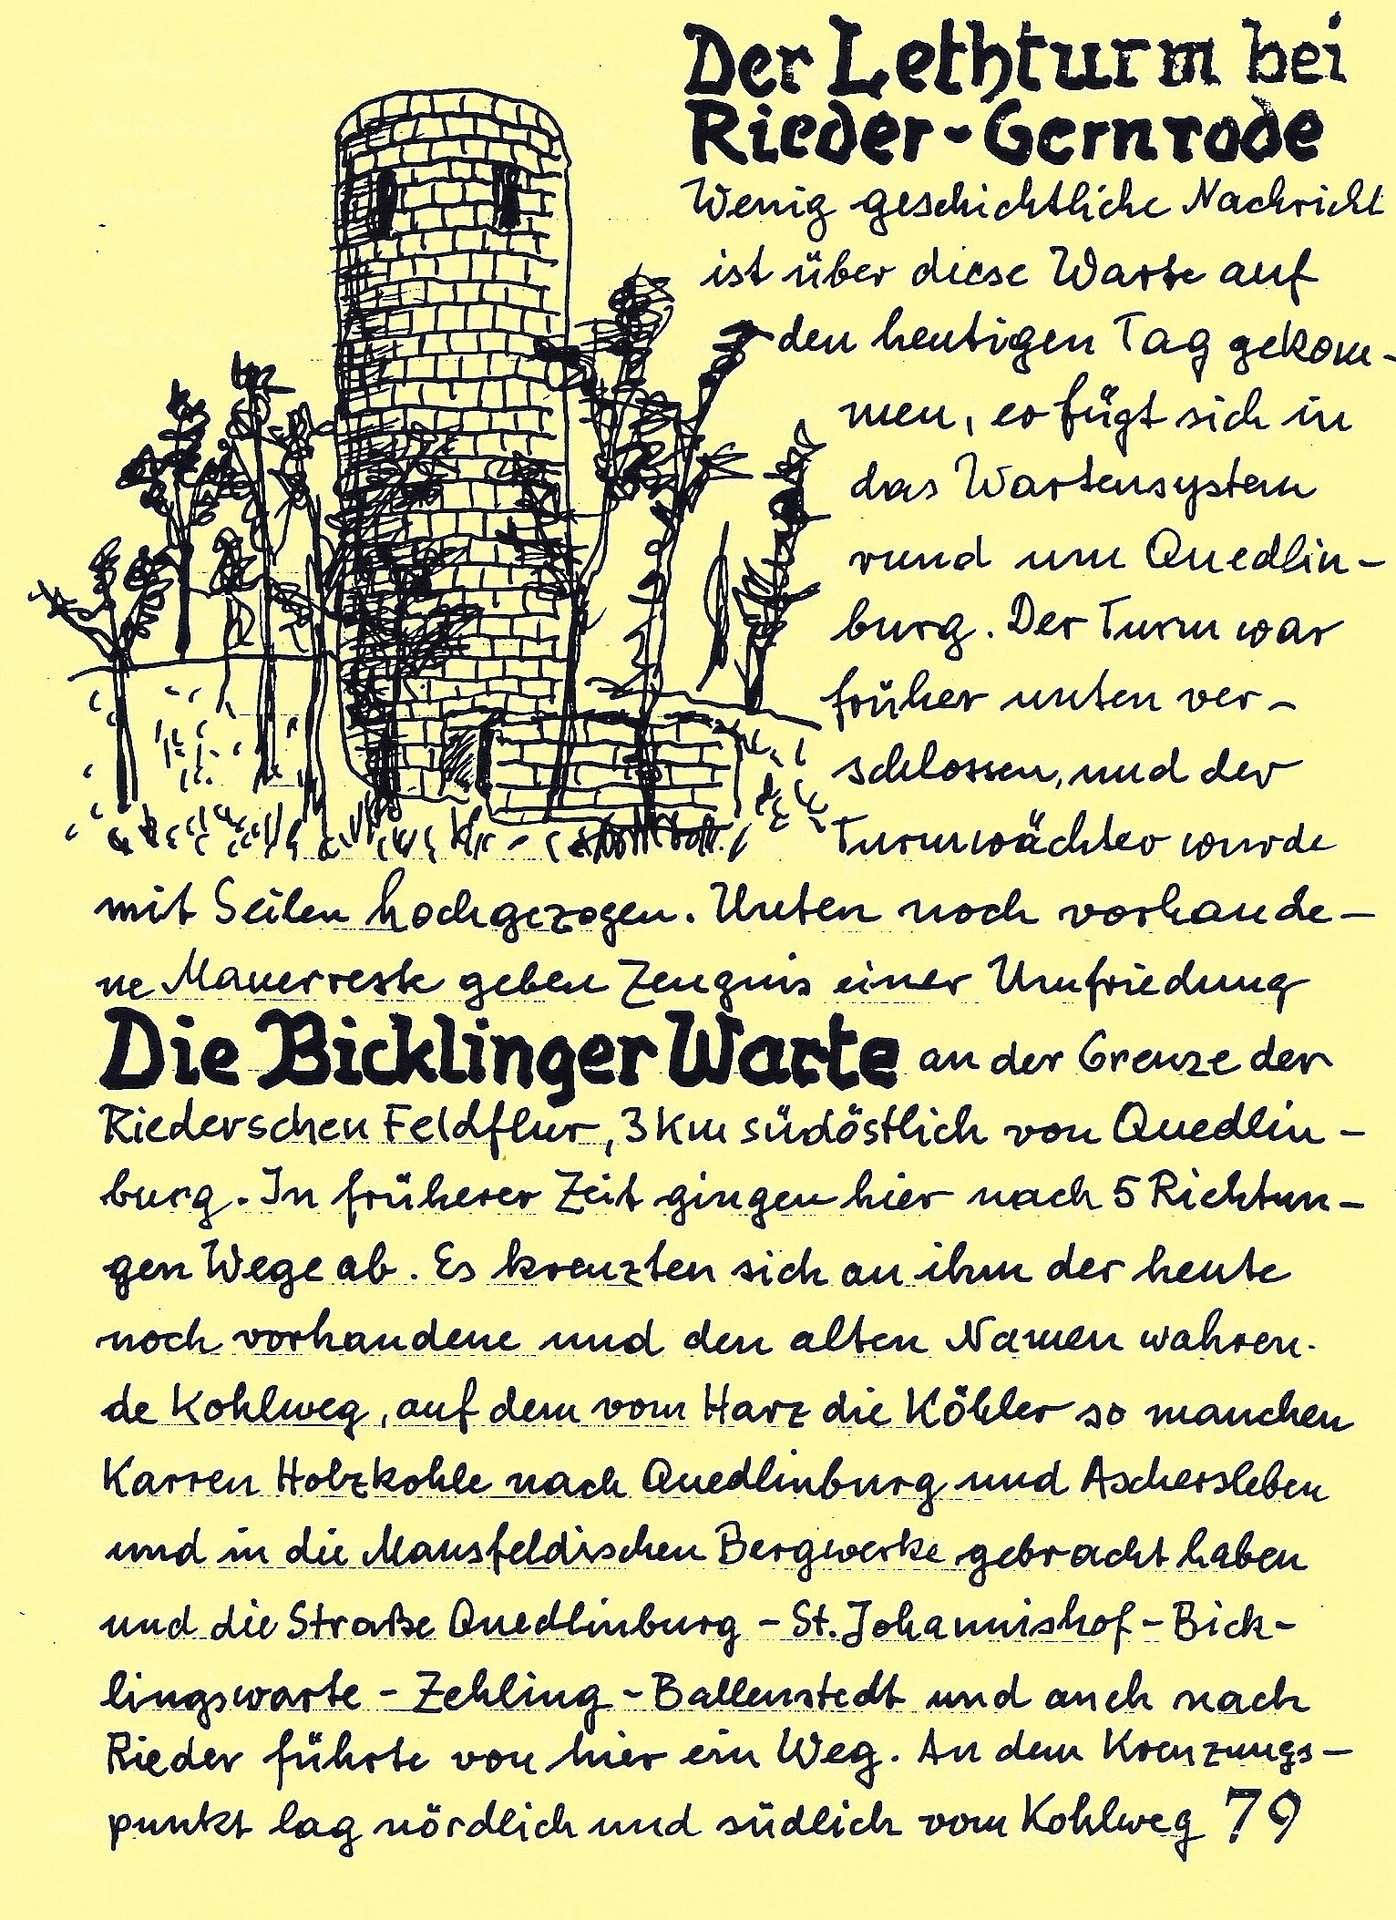 Der Lethturm bei
Rieder-Gernrode
Wenig geschichtliche Nachricht
ist über diese Warte auf
den heutigen Tag gekom-
men, es fügt sich in
das Wartensystem
rund um Quedlin-
burg. Der Turm war
früher unten ver-
schlossen, und der
Turmwächter wurde
mit Seilen hochgezogen. Unten noch vorhande-
ne Mauerreste geben Zeugnis einer Umfriedung
Die Bicklinger Warte an der Grenze der
Riederschen Feldflur, 3 Km südöstlich von Quedlin-
burg. In früherer Zeit gingen hier nach 5 Richtun-
gen Wege ab. Es kreuzten sich an ihm der heute
noch vorhandene und den alten Namen wahren-
de Kohlweg, auf dem vom Harz die Köhler so manchen
Karren Holzkohle nach Quedlinburg und Aschersleben
und in die Mansfeldischen Bergwerke gebracht haben
und die Straße Quedlinburg - St. Johannishof - Bick-
lingswarte - Zehling - Ballenstedt und auch nach
Rieder führte von hier ein Weg. An dem Kreuzungs-
punkt lag nördlich und südlich vom Kohlweg 79